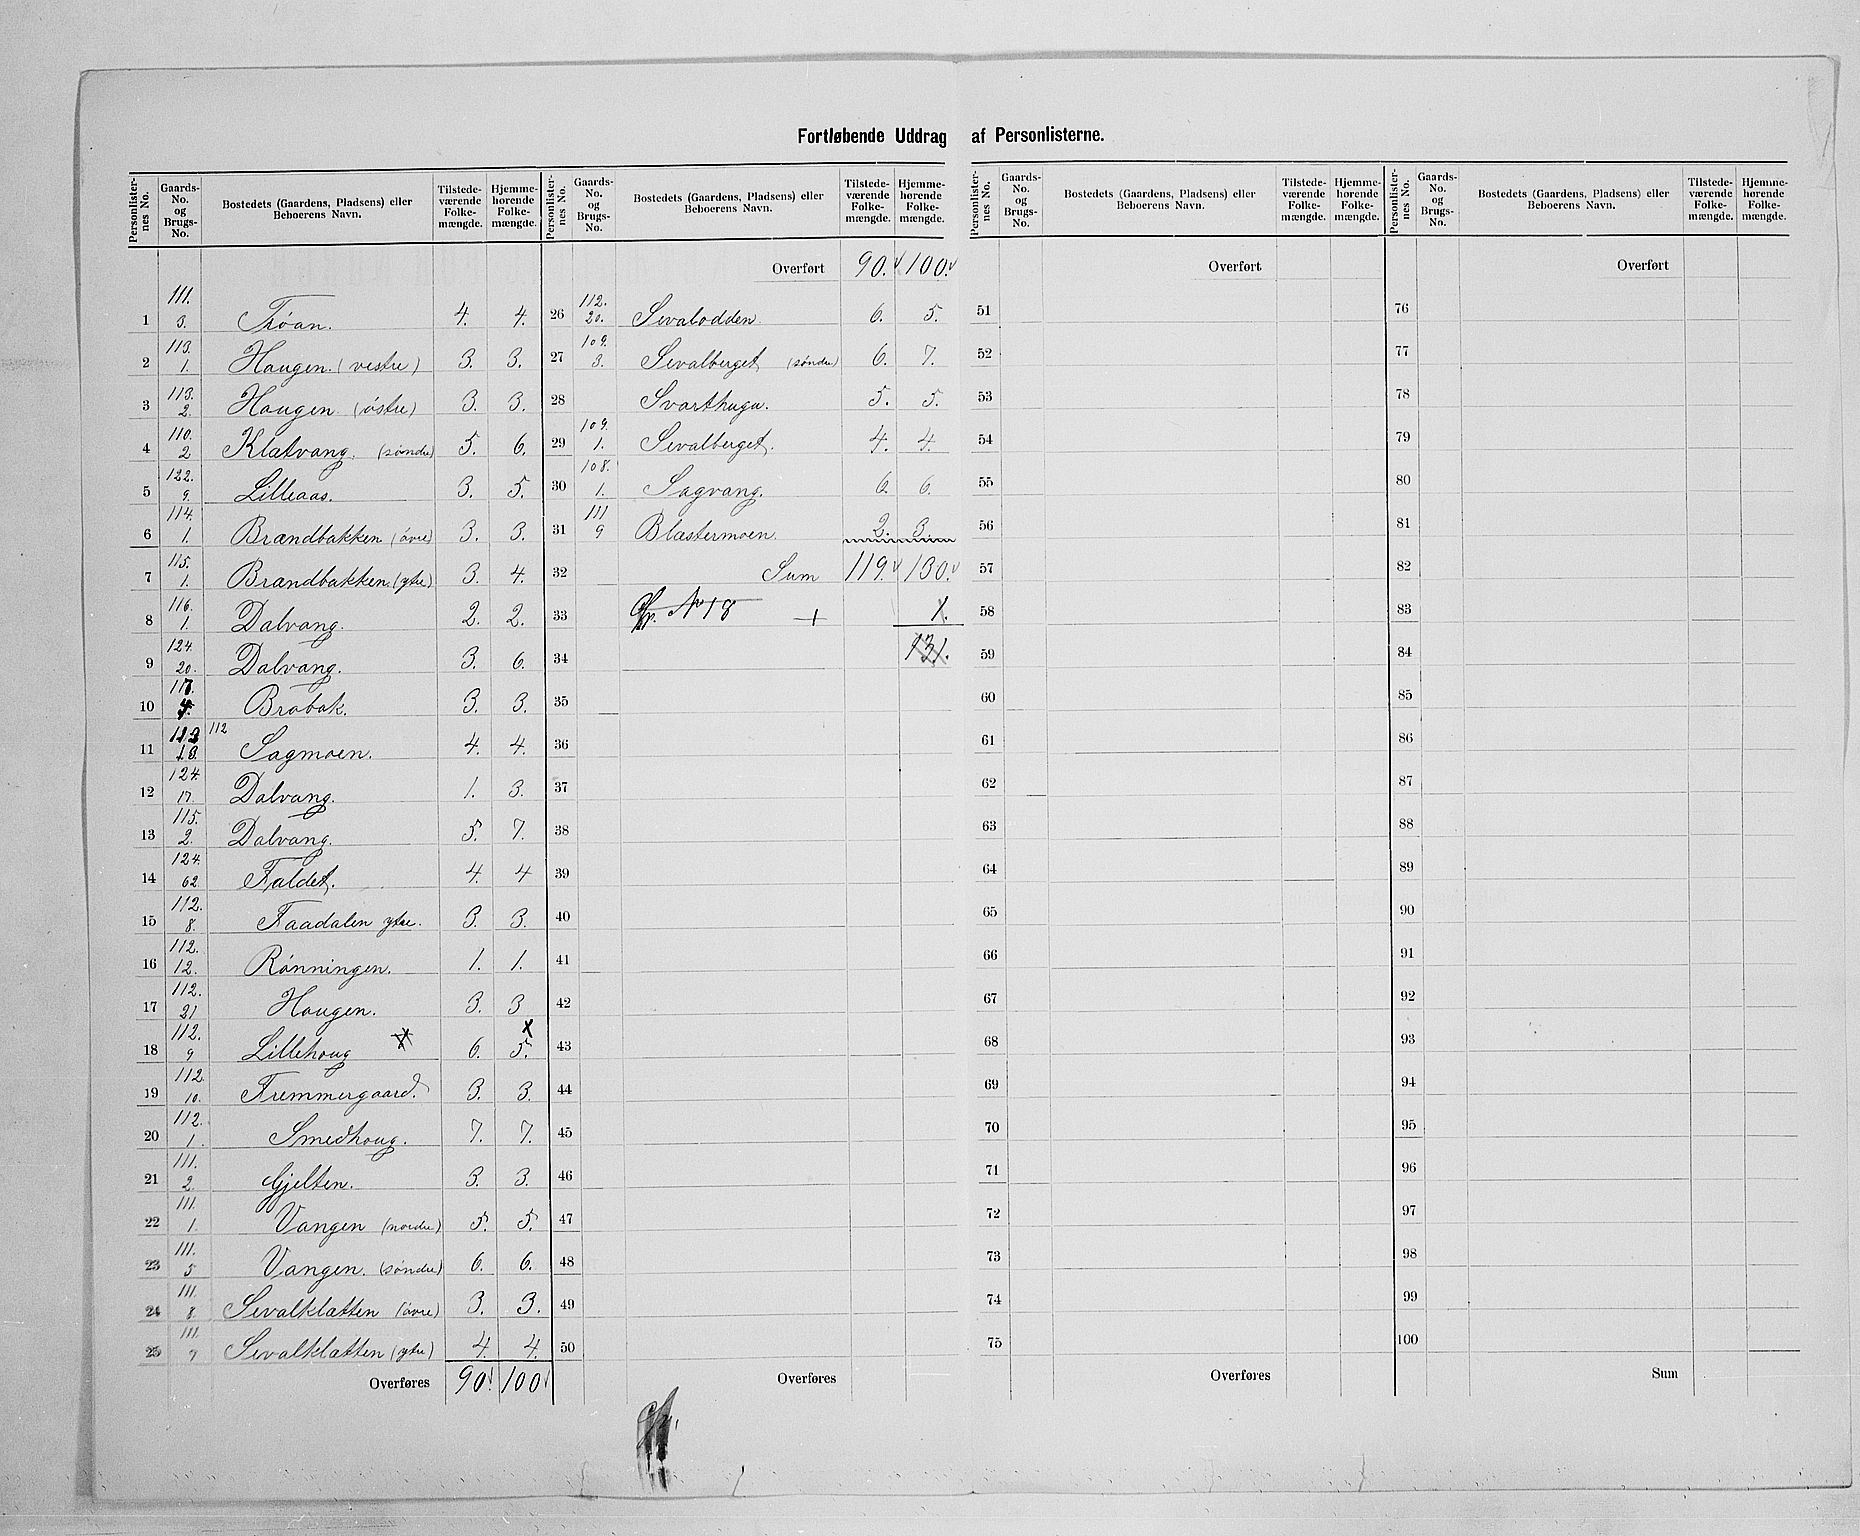 Fortløbende Uddrag af Personlisterne.
Personlister-nes No. | Gaards-No. og Brugs-No. | Bostedets (Gaardens, Pladsens) eller Beboerens Navn. | Tilstede-værende Folke-mængde. | Hjemme-hørende Folke-mængde.
1 111. 3. Thöan. 4. 4.
2 113. 1. Haugen. (vestre) 3. 3.
3 113. 2. Haugen (östre) 3. 3.
4 110. 2 Klætvang. (söndre) 5. 6.
5 122. 9. Lilleaas. 3. 5.
6 114. 1. Brændbakken (övre) 3. 3.
7 115. 1. Brændbakken (ytre) 3. 4.
8 116. 1. Dalvang. 2. 2.
9 124. 20. Dalvang. 3. 6.
10 Brobak. 3. 3.
11 112 Sagmoen. 4. 4.
12 124. 17. Dalvang. 1. 3.
13 115. 2. Dalvang. 5. 7.
14 124. 62. Faldet. 4. 4
15 112. 8. Faadalen ytre. 3. 3.
16 112. 12. Rönningen. 1. 1.
17 112. 21 Haugen. 3. 3
18 112. 9 Lillehoug 6. 5.
19 112. 10. Fremmergaard. 3. 3.
20 112. 1. Smedhoug. 7. 7.
21 111. 2. Gjelten. 3. 3.
22 111. 1. Vangen (nordre) 5. 5.
23 111. 5 Vangen. (söndre) 6. 6.
24 111. 8. Sevalklætten (övre) 3. 3.
25 111. 7 Sevalklætten (ytre) 4. 4.
Overføres 90. 100
Personlister-nes No. | Gaards-No. og Brugs-No. | Bostedets (Gaardens, Pladsens) eller Beboerens Navn. | Tilstede-værende Folke-mængde. | Hjemme-hørende Folke-mængde.
Overført 90. 100.
26 112. 20. Sevalodden. 6. 5.
27 109. 3. Sevalberget (söndre) 6. 7.
28 Svarthuga. 5. 5.
29 109. 1. Sevalberget. 4. 4.
30 108. 1. Sagvang. 6. 6.
31 111 9 Blæstermoen. 2. 3.
32 Sum 119. 130.
33 No 18 + 1.
34 131.
35
36
37
38
39
40
41
42
43
44
45
46
47
48
49
50
Overføres
Personlister-nes No. | Gaards-No. og Brugs-No. | Bostedets (Gaardens, Pladsens) eller Beboerens Navn. | Tilstede-værende Folke-mængde. | Hjemme-hørende Folke-mængde.
Overført
51
52
53
54
55
56
57
58
59
60
61
62
63
64
65
66
67
68
69
70
71
72
73
74
75
Overføres
Personlister-nes No. | Gaards-No. og Brugs-No. | Bostedets (Gaardens, Pladsens) eller Beboerens Navn. | Tilstede-værende Folke-mængde. | Hjemme-hørende Folke-mængde.
Overført
76
77
78
79
80
81
82
83
84
85
86
87
88
89
90
91
92
93
94
95
96
97
98
99
100
Sum